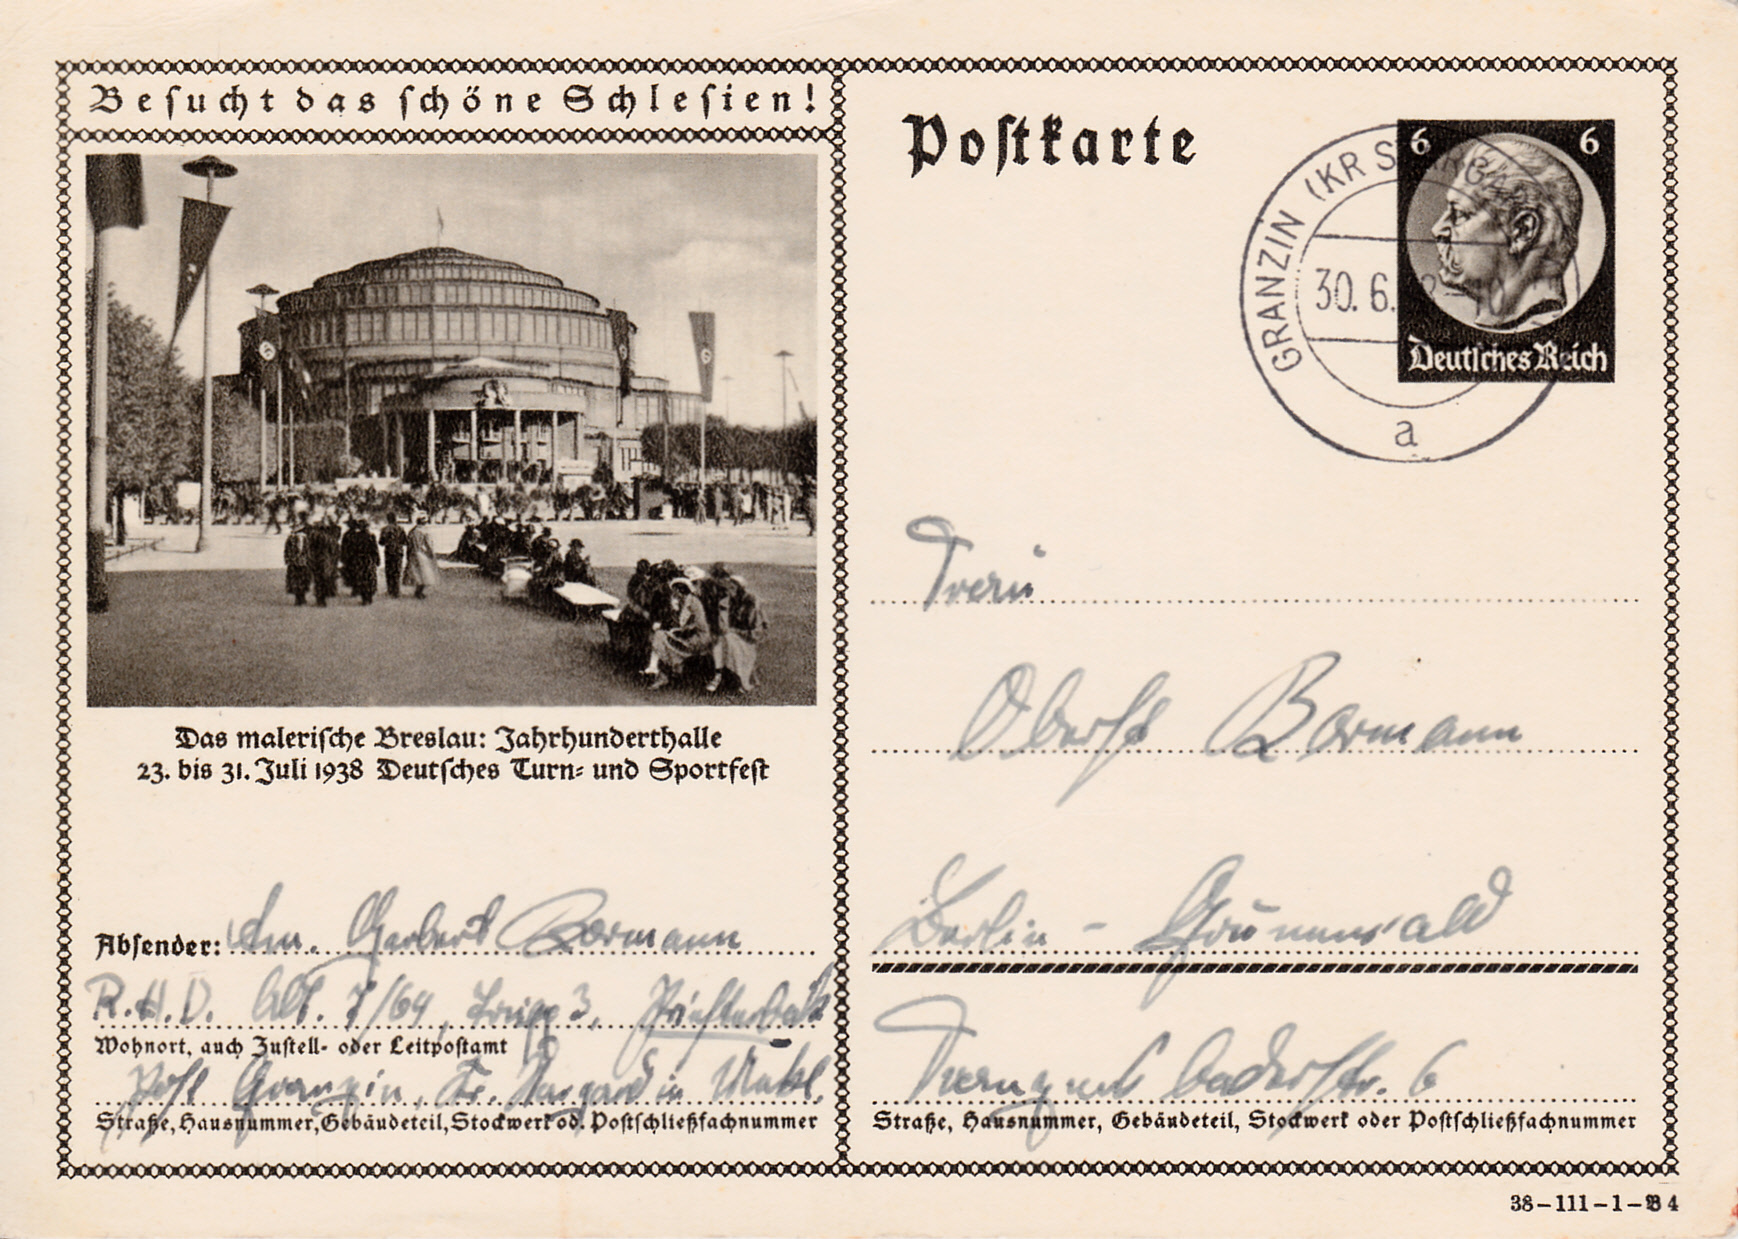 Besucht das schöne Schlesien!
Das malerische Breslau: Jahrhunderthalle
23. bis 31. Juli 1938 Deutsches Turn- und Sportfest
Absender: Am. Herbert Bormann
R.A.D. Abt. 7/64, Trupp 3,
Wohnort, auch Zustell- oder Leitpostamt
Post Granzin, Kr. Stargard in Meckl.
Straße, Hausnummer, Gebäudeteil, Stockwerk od. Postschließfachnummer
Postkarte
6 6
Deutsches Reich
GRANZIN (KR STARG
30.6.
a
Frau
Oberst Bormann
Berlin - Grunewald
6
Straße, Hausnummer, Gebäudeteil, Stockwerk oder Postschließfachnummer
38-111-1-B 4